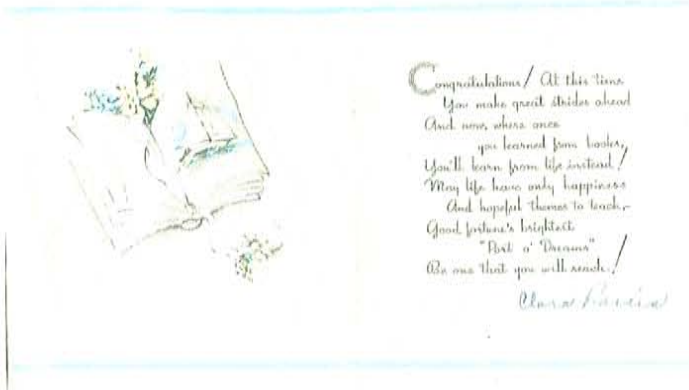 Congratulations! At this time
You make great strides ahead
And now, where once
you learned from books,
You'll learn from life instead!
May life have only happiness
And hopeful themes to teach,
Good fortune's brightest
"Port o' Dreams"
Be one that you will reach!
Clara